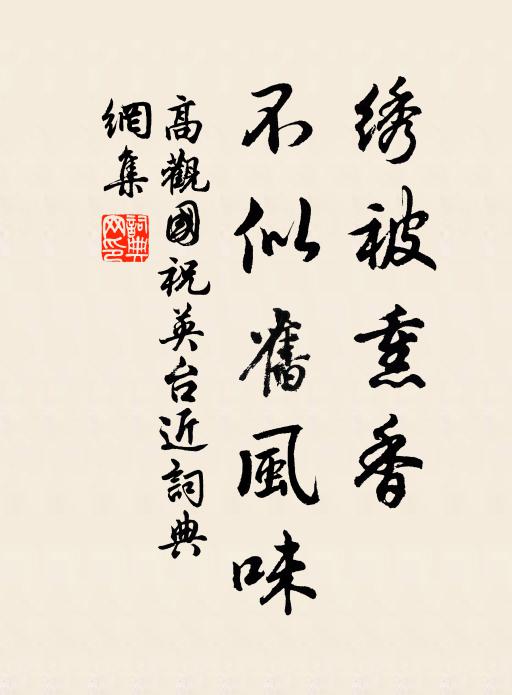 绣被熏香
不似舊風味
高觀國祝英台近詞典
網集
詞典
网印